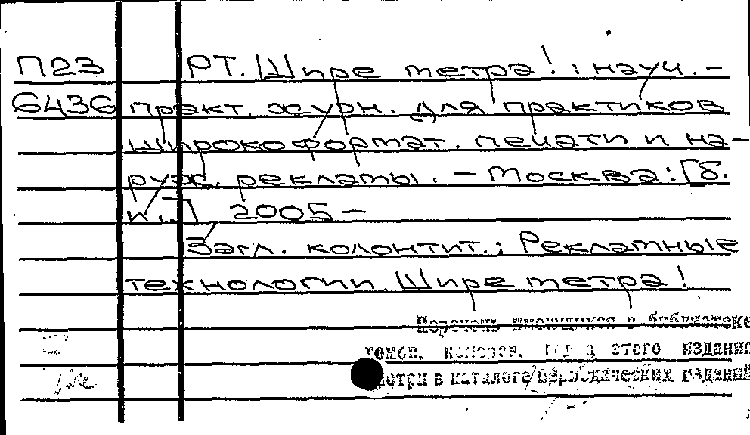 П23 РТ. Шире метра! : науч.-
6436 практ. журн. для практиков
широкоформат. печати и на-
руж. рекламы. - Москва : [б.
и.] 2005 -
Загл. колонтит.: Рекламные
технологии Шире метра!
Перечень имеющихся в библиотеке
томов, номеров, год а этого издания
смотри в каталоге периодических изданий